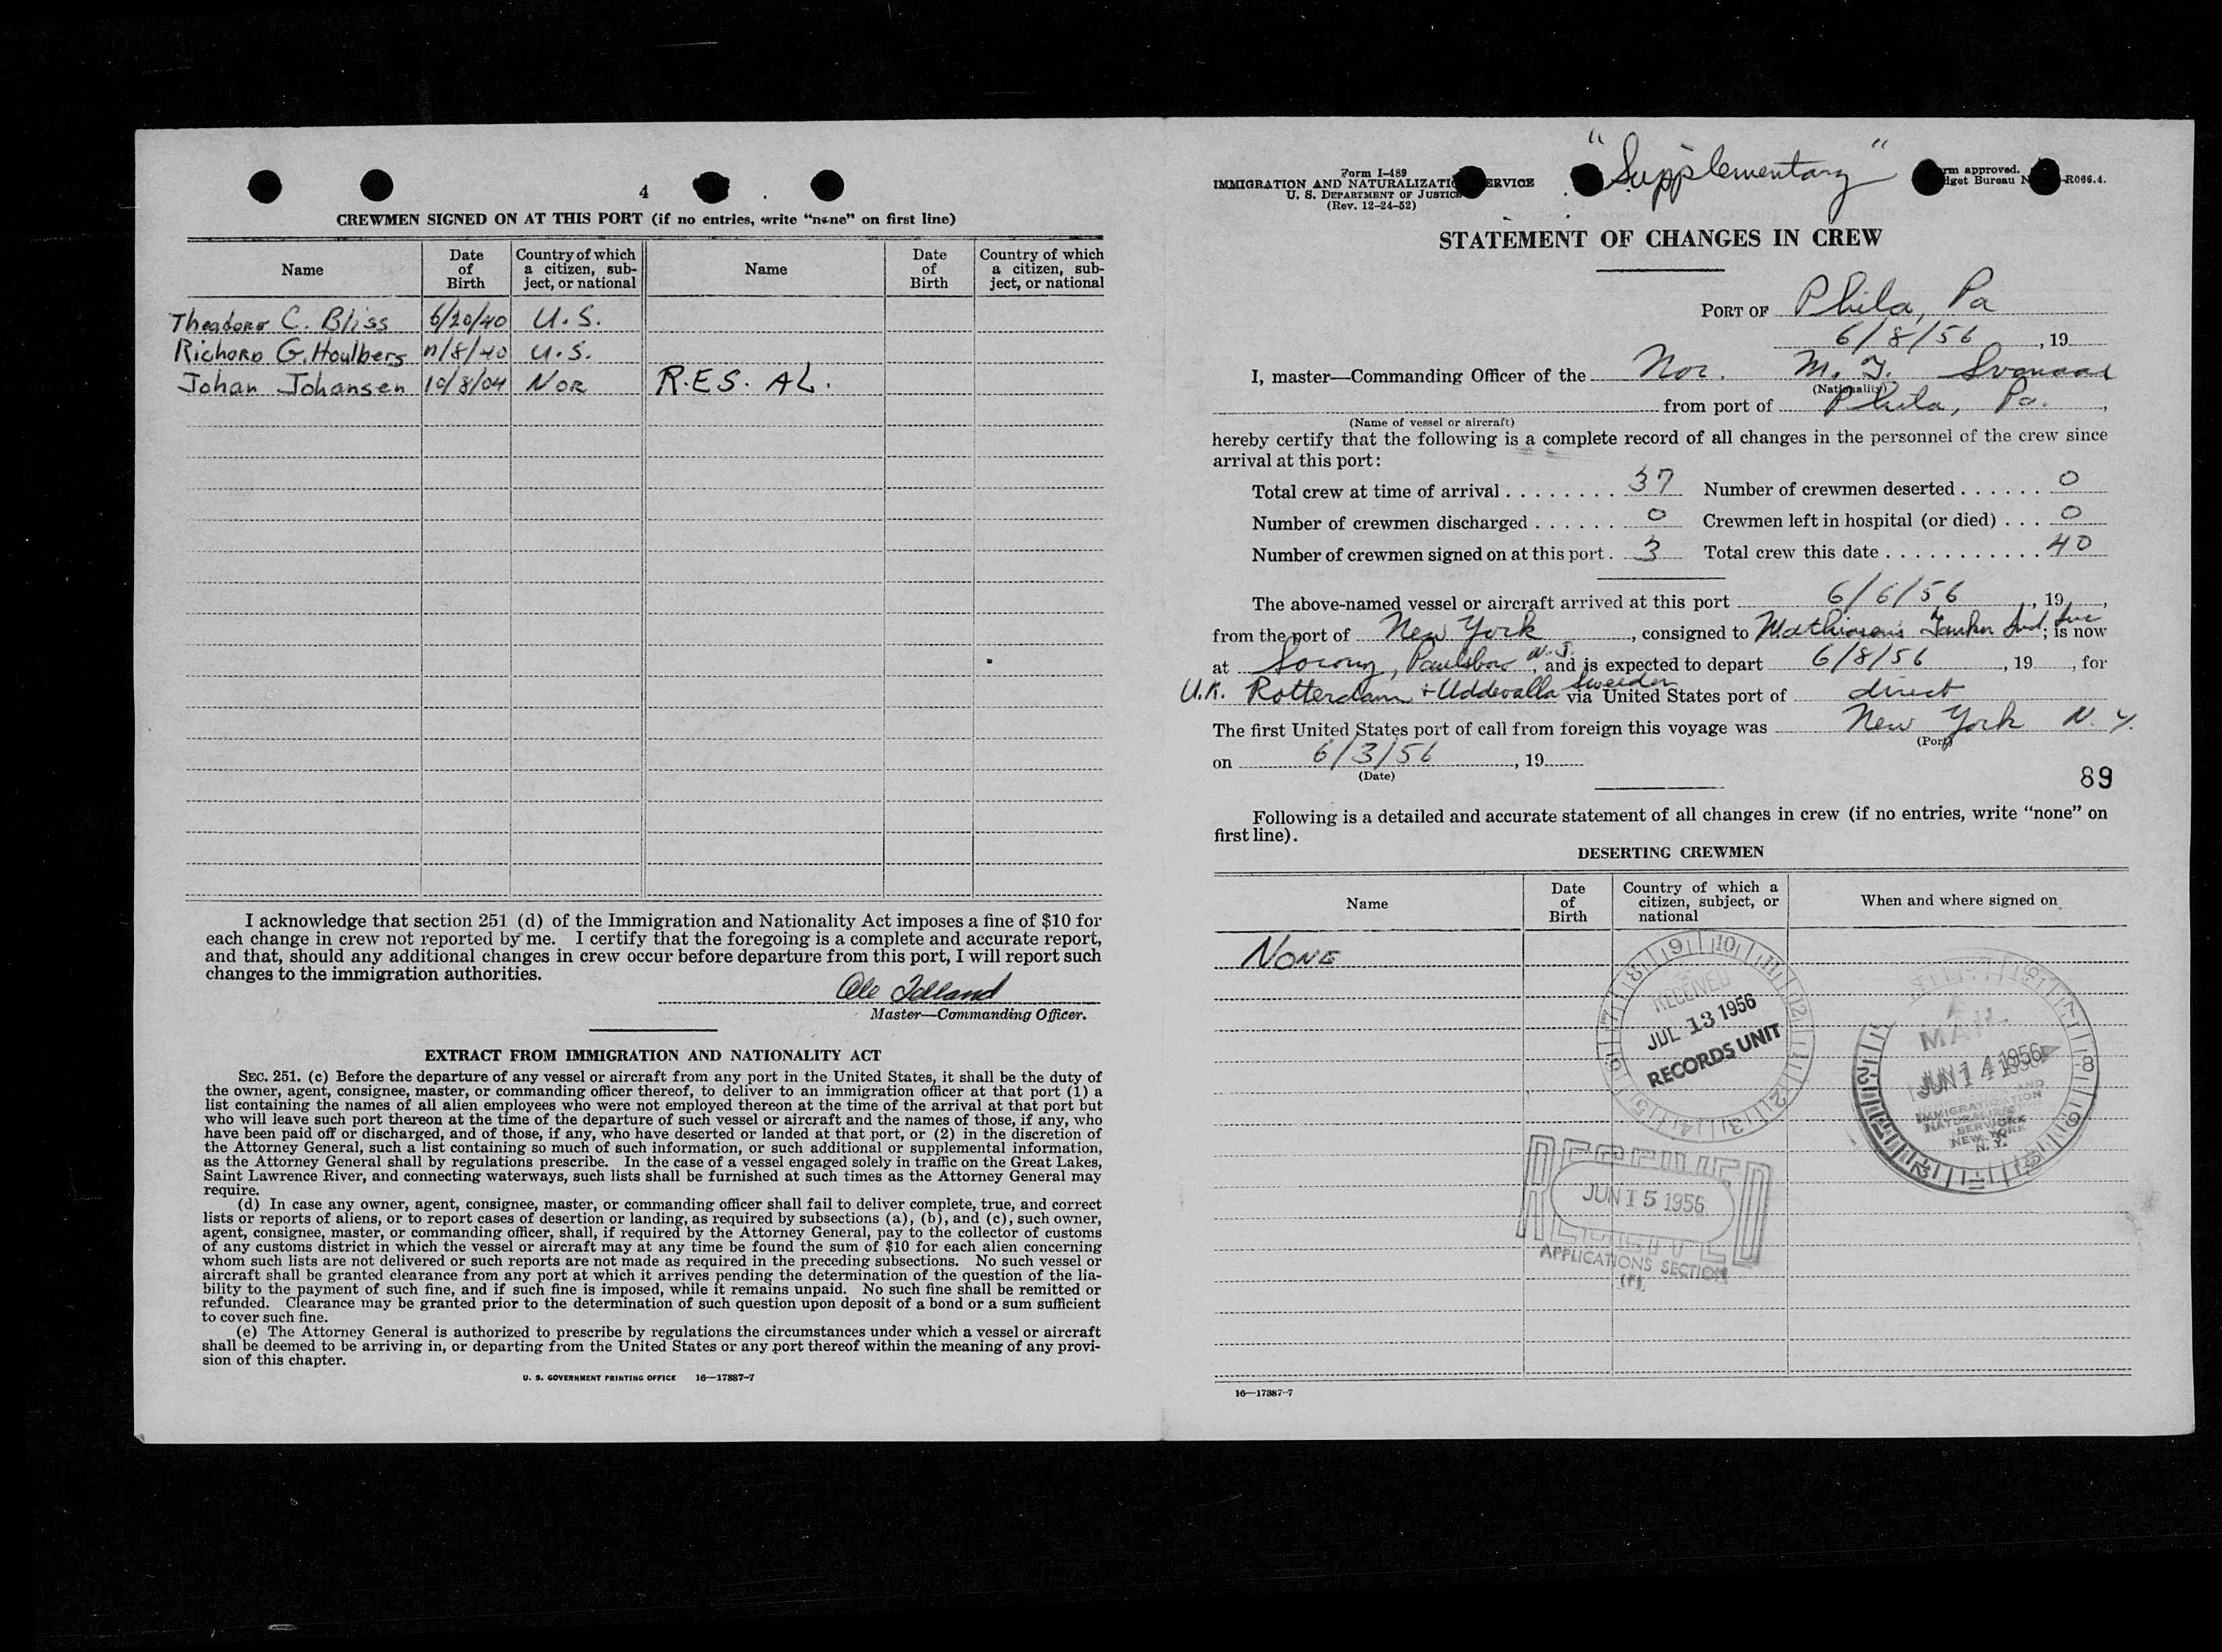 4
CREWMEN SIGNED ON AT THIS PORT (if no entries, write "none" on first line)
Name
Date of Birth
Country of which a citizen, subject, or national
Name
Date of Birth
Country of which a citizen, subject, or national
Theodore C. Bliss 6/20/40 U.S.
Richard G. Houlberg 11/8/40 U.S.
Johan Johansen 10/8/04 Nor R.E.S. AL.
I acknowledge that section 251 (d) of the Immigration and Nationality Act imposes a fine of $10 for
each change in crew not reported by me. I certify that the foregoing is a complete and accurate report,
and that, should any additional changes in crew occur before departure from this port, I will report such
changes to the immigration authorities.
Ole
Master—Commanding Officer.
EXTRACT FROM IMMIGRATION AND NATIONALITY ACT
SEC. 251. (c) Before the departure of any vessel or aircraft from any port in the United States, it shall be the duty of
the owner, agent, consignee, master, or commanding officer thereof, to deliver to an immigration officer at that port (1) a
list containing the names of all alien employees who were not employed thereon at the time of the arrival at that port but
who will leave such port thereon at the time of the departure of such vessel or aircraft and the names of those, if any, who
have been paid off or discharged, and of those, if any, who have deserted or landed at that port, or (2) in the discretion of
the Attorney General, such a list containing so much of such information, or such additional or supplemental information,
as the Attorney General shall by regulations prescribe. In the case of a vessel engaged solely in traffic on the Great Lakes,
Saint Lawrence River, and connecting waterways, such lists shall be furnished at such times as the Attorney General may
require.
(d) In case any owner, agent, consignee, master, or commanding officer shall fail to deliver complete, true, and correct
lists or reports of aliens, or to report cases of desertion or landing, as required by subsections (a), (b), and (c), such owner,
agent, consignee, master, or commanding officer, shall, if required by the Attorney General, pay to the collector of customs
of any customs district in which the vessel or aircraft may at any time be found the sum of $10 for each alien concerning
whom such lists are not delivered or such reports are not made as required in the preceding subsections. No such vessel or
aircraft shall be granted clearance from any port at which it arrives pending the determination of the question of the lia-
bility to the payment of such fine, and if such fine is imposed, while it remains unpaid. No such fine shall be remitted or
refunded. Clearance may be granted prior to the determination of such question upon deposit of a bond or a sum sufficient
to cover such fine.
(e) The Attorney General is authorized to prescribe by regulations the circumstances under which a vessel or aircraft
shall be deemed to be arriving in, or departing from the United States or any port thereof within the meaning of any provi-
sion of this chapter.
U. S. GOVERNMENT PRINTING OFFICE 16—17887-7
"Supplementary"
Form I-489
IMMIGRATION AND NATURALIZATI ERVICE
U. S. DEPARTMENT OF JUSTICE
(Rev. 12-24-52)
rm approved.
dget Bureau N -R066.4.
STATEMENT OF CHANGES IN CREW
PORT OF Phila, Pa
6/8/56, 19
I, master—Commanding Officer of the Nor. M. T. Svanaas
(Nationality)
from port of Phila, Pa.,
(Name of vessel or aircraft)
hereby certify that the following is a complete record of all changes in the personnel of the crew since
arrival at this port:
Total crew at time of arrival . . . . . . . . 37 Number of crewmen deserted . . . . . . 0
Number of crewmen discharged . . . . . . 0 Crewmen left in hospital (or died) . . . 0
Number of crewmen signed on at this port . 3 Total crew this date . . . . . . . . . . . 40
The above-named vessel or aircraft arrived at this port 6/6/56, 19,
from the port of New York, consigned to Mathiasen's Tanker Ind, Inc; is now
at Socony, Paulsboro N.J., and is expected to depart 6/8/56, 19, for
U.K. Rotterdam + Uddevalla Sweeden via United States port of direct
The first United States port of call from foreign this voyage was New York N.Y.
(Port)
on 6/3/56, 19
(Date)
89
Following is a detailed and accurate statement of all changes in crew (if no entries, write "none" on
first line).
DESERTING CREWMEN
Name
Date of Birth
Country of which a citizen, subject, or national
When and where signed on
NONE
RECEIVED
JUL 13 1956
RECORDS UNIT
MAIL
JUN 14 1956
IMMIGRATION AND
NATURALIZATION
SERVICE
NEW YORK
N. Y.
RECEIVED
JUN 15 1956
APPLICATIONS SECTION
16—17887-7